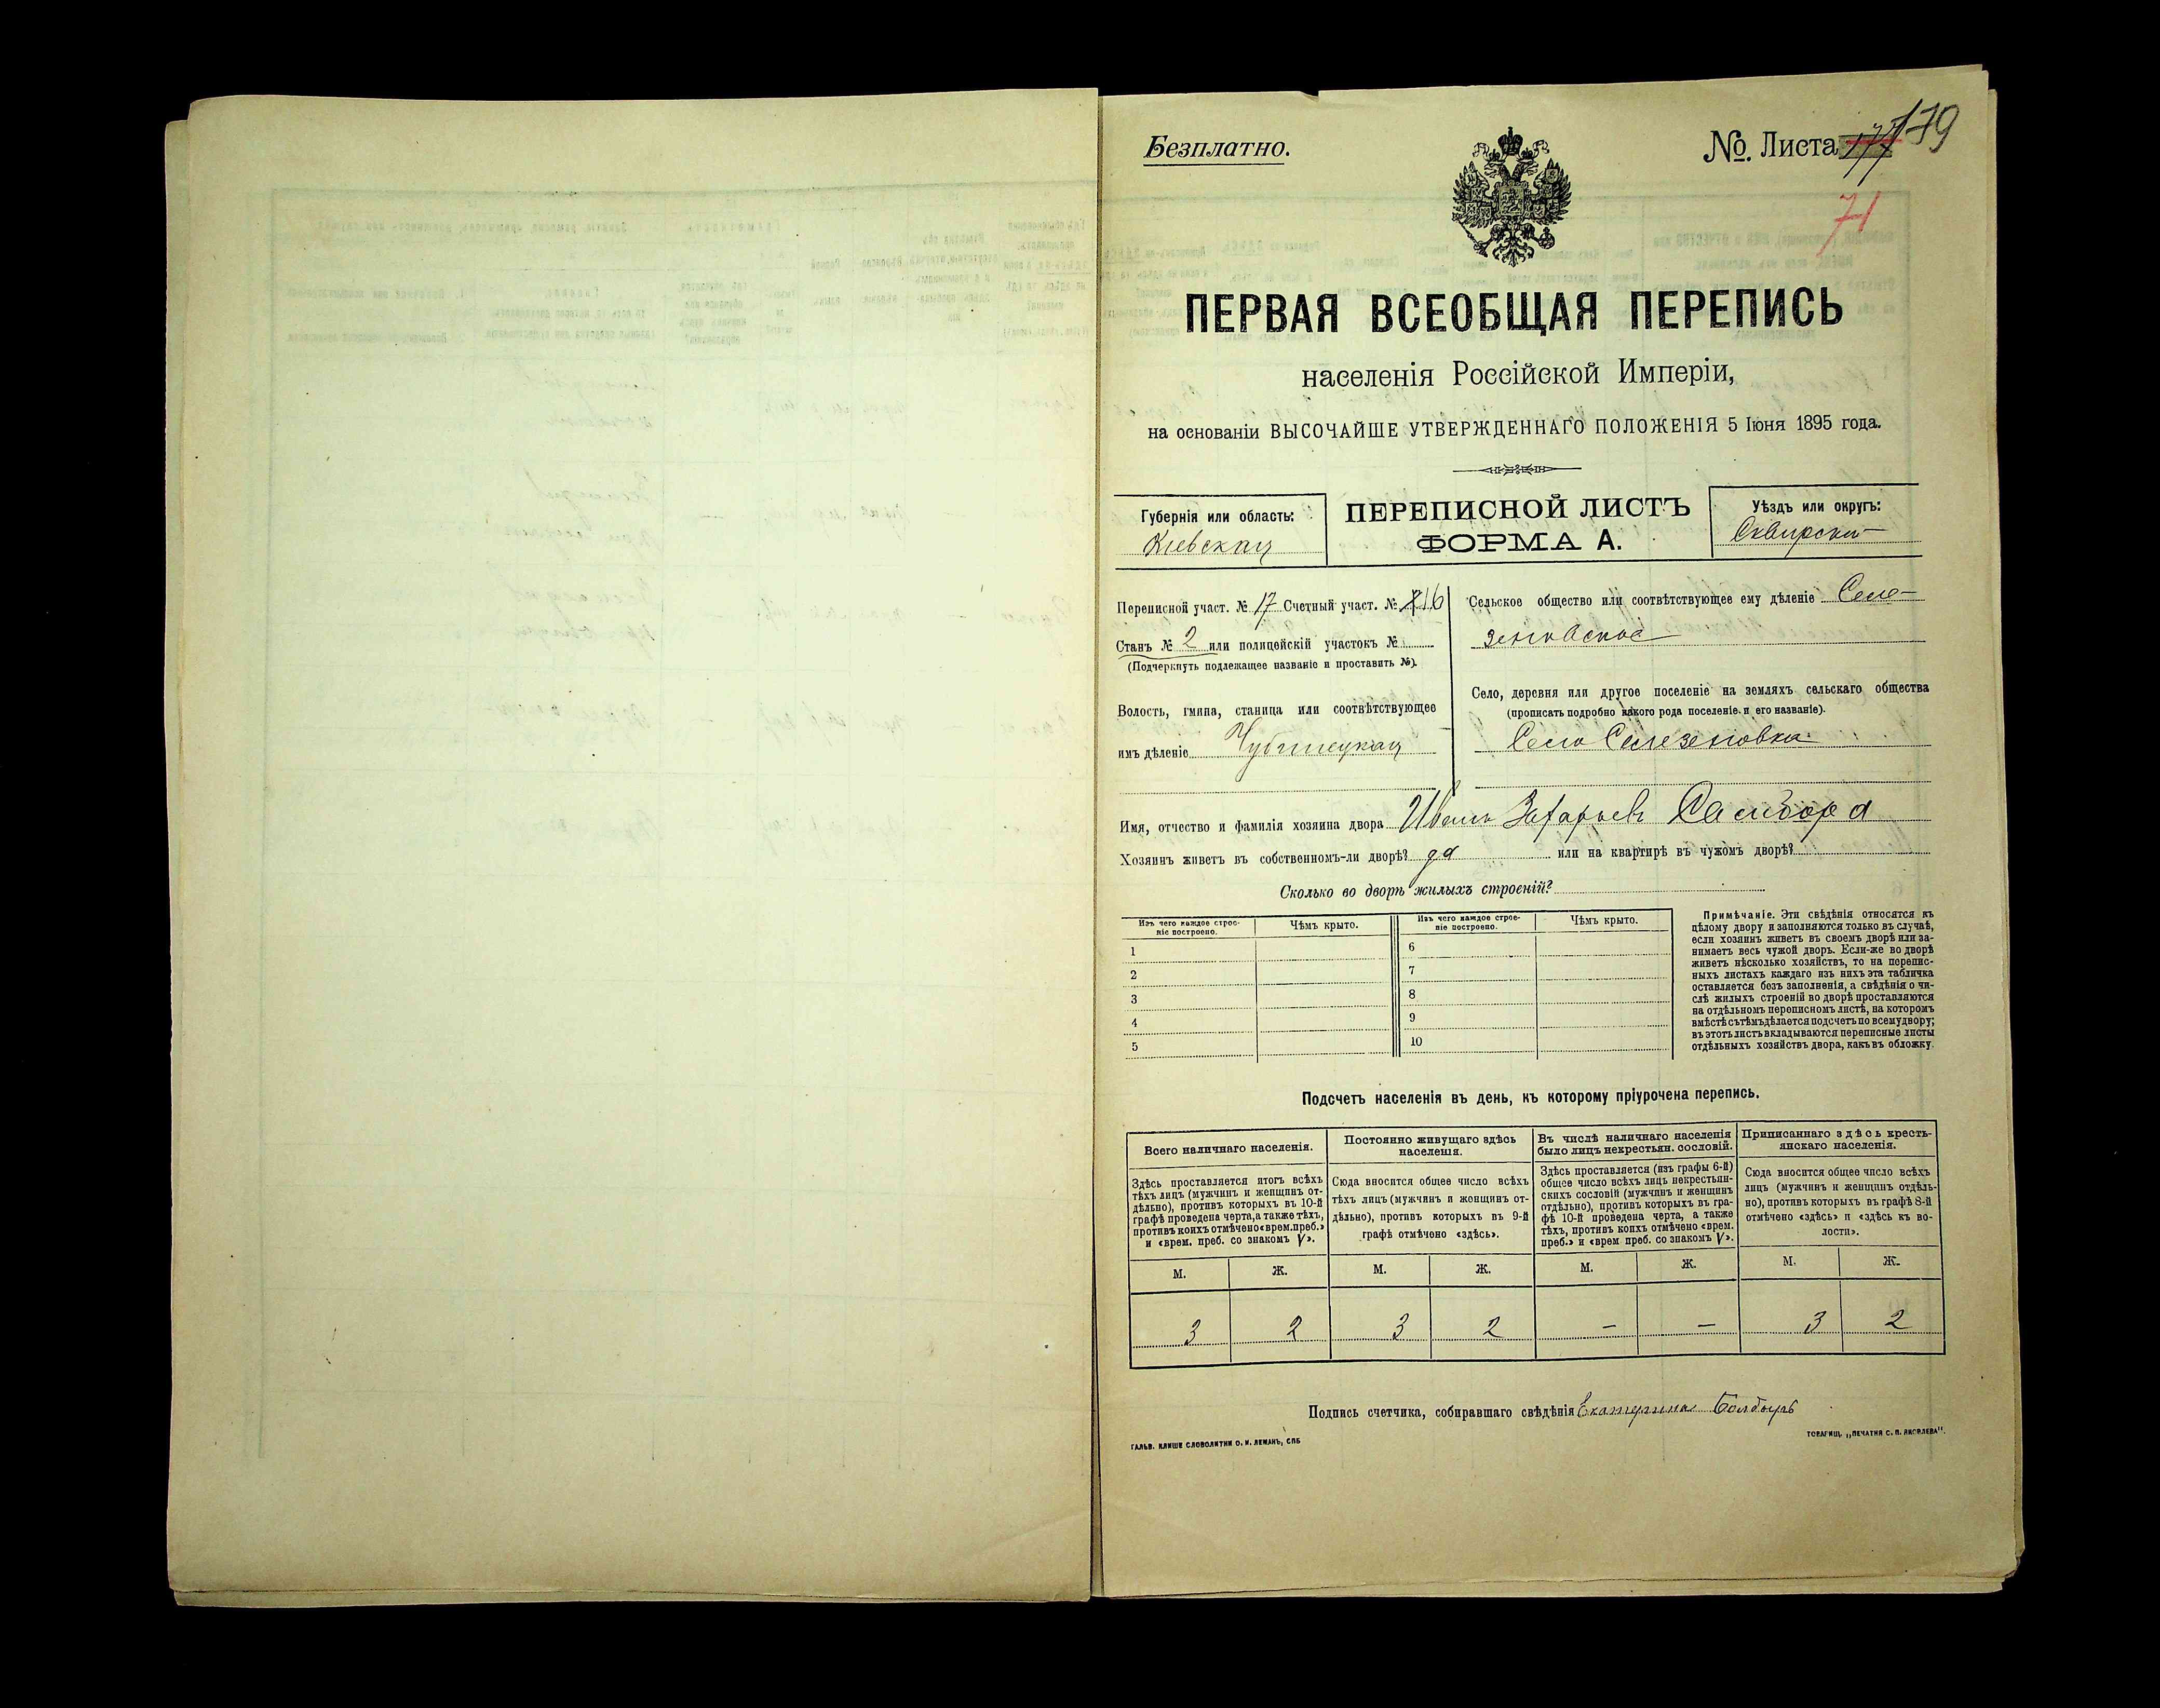 Безплатно.
№. Листа 179
71
ПЕРВАЯ ВСЕОБЩАЯ ПЕРЕПИСЬ
населенія Россійской Имперіи,
на основаніи ВЫСОЧАЙШЕ УТВЕРЖДЕННАГО ПОЛОЖЕНІЯ 5 Іюня 1895 года.
Губернія или область:
Кіевская
ПЕРЕПИСНОЙ ЛИСТЪ
ФОРМА А.
Уѣздъ или округъ:
Сквирскій
Переписной участ. № 17 Счетный участ. № 16
Станъ № 2 или полицейскій участокъ №
(Подчеркнуть подлежащее названіе и проставить №).
Волость, гмина, станица или соотвѣтствующее
имъ дѣленіе
Сельское общество или соотвѣтствующее ему дѣленіе Селе-
зеновское
Село, деревня или другое поселеніе на земляхъ сельскаго общества
(прописать подробно какого рода поселеніе и его названіе).
Село Селезеновка
Имя, отчество и фамилія хозяина двора Иванъ Захарьевъ
Хозяинъ живетъ въ собственномъ-ли дворѣ? да или на квартирѣ въ чужомъ дворѣ?
Сколько во дворѣ жилыхъ строеній?
Изъ чего каждое строе-
ніе построено.
Чѣмъ крыто.
1
2
3
4
5
Изъ чего каждое строе-
ніе построено.
Чѣмъ крыто.
6
7
8
9
10
Примѣчаніе. Эти свѣдѣнія относятся къ
цѣлому двору и заполняются только въ случаѣ,
если хозяинъ живетъ въ своемъ дворѣ или за-
нимаетъ весь чужой дворъ. Если-же во дворѣ
живетъ нѣсколько хозяйствъ, то на перепис-
ныхъ листахъ каждаго изъ нихъ эта табличка
оставляется безъ заполненія, а свѣдѣнія о чи-
слѣ жилыхъ строеній во дворѣ проставляются
на отдѣльномъ переписномъ листѣ, на которомъ
вмѣстѣ съ тѣмъ дѣлается подсчетъ по всему двору;
въ этотъ листъ вкладываются переписные листы
отдѣльныхъ хозяйствъ двора, какъ въ обложку.
Подсчетъ населенія въ день, къ которому пріурочена перепись.
Всего наличнаго населенія.
Здѣсь проставляется итогъ всѣхъ
тѣхъ лицъ (мужчинъ и женщинъ от-
дѣльно), противъ которыхъ въ 10-й
графѣ проведена черта, а также тѣхъ,
противъ коихъ отмѣчено «врем. преб.»
и «врем. преб. со знакомъ V».
Постоянно живущаго здѣсь
населенія.
Сюда вносится общее число всѣхъ
тѣхъ лицъ (мужчинъ и женщинъ от-
дѣльно), противъ которыхъ въ 9-й
графѣ отмѣчено «здѣсь».
Въ числѣ наличнаго населенія
было лицъ некрестьян. сословій.
Здѣсь проставляется (изъ графы 6-й)
общее число всѣхъ лицъ некрестьян-
скихъ сословій (мужчинъ и женщинъ
отдѣльно), противъ которыхъ въ гра-
фѣ 10-й проведена черта, а также
тѣхъ, противъ коихъ отмѣчено «врем.
преб.» и «врем преб. со знакомъ V».
Приписаннаго здѣсь кресть-
янскаго населенія.
Сюда вносится общее число всѣхъ
лицъ (мужчинъ и женщинъ отдѣль-
но), противъ которыхъ въ графѣ 8-й
отмѣчено «здѣсь» и «здѣсь къ во-
лости».
М. Ж. М. Ж. М. Ж. М. Ж.
3 2 3 2 — — 3 2
Подпись счетчика, собиравшаго свѣдѣнія Екатерина
ГАЛЬВ. КЛИШЕ СЛОВОЛИТНИ О. И. ЛЕМАНЪ, СПБ
ТОВАРИЩ. „ПЕЧАТНЯ С. П. ЯКОВЛЕВА".